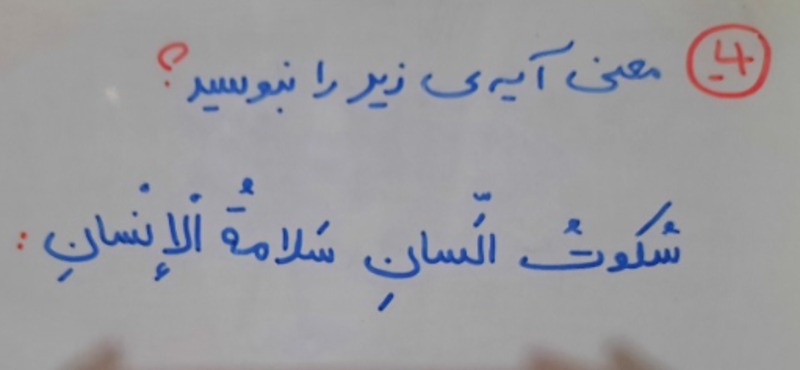 4- معنی آیه‌ی زیر را بنویسید؟
سُکوتُ اللّسانِ سَلامةُ الْإنْسانِ :